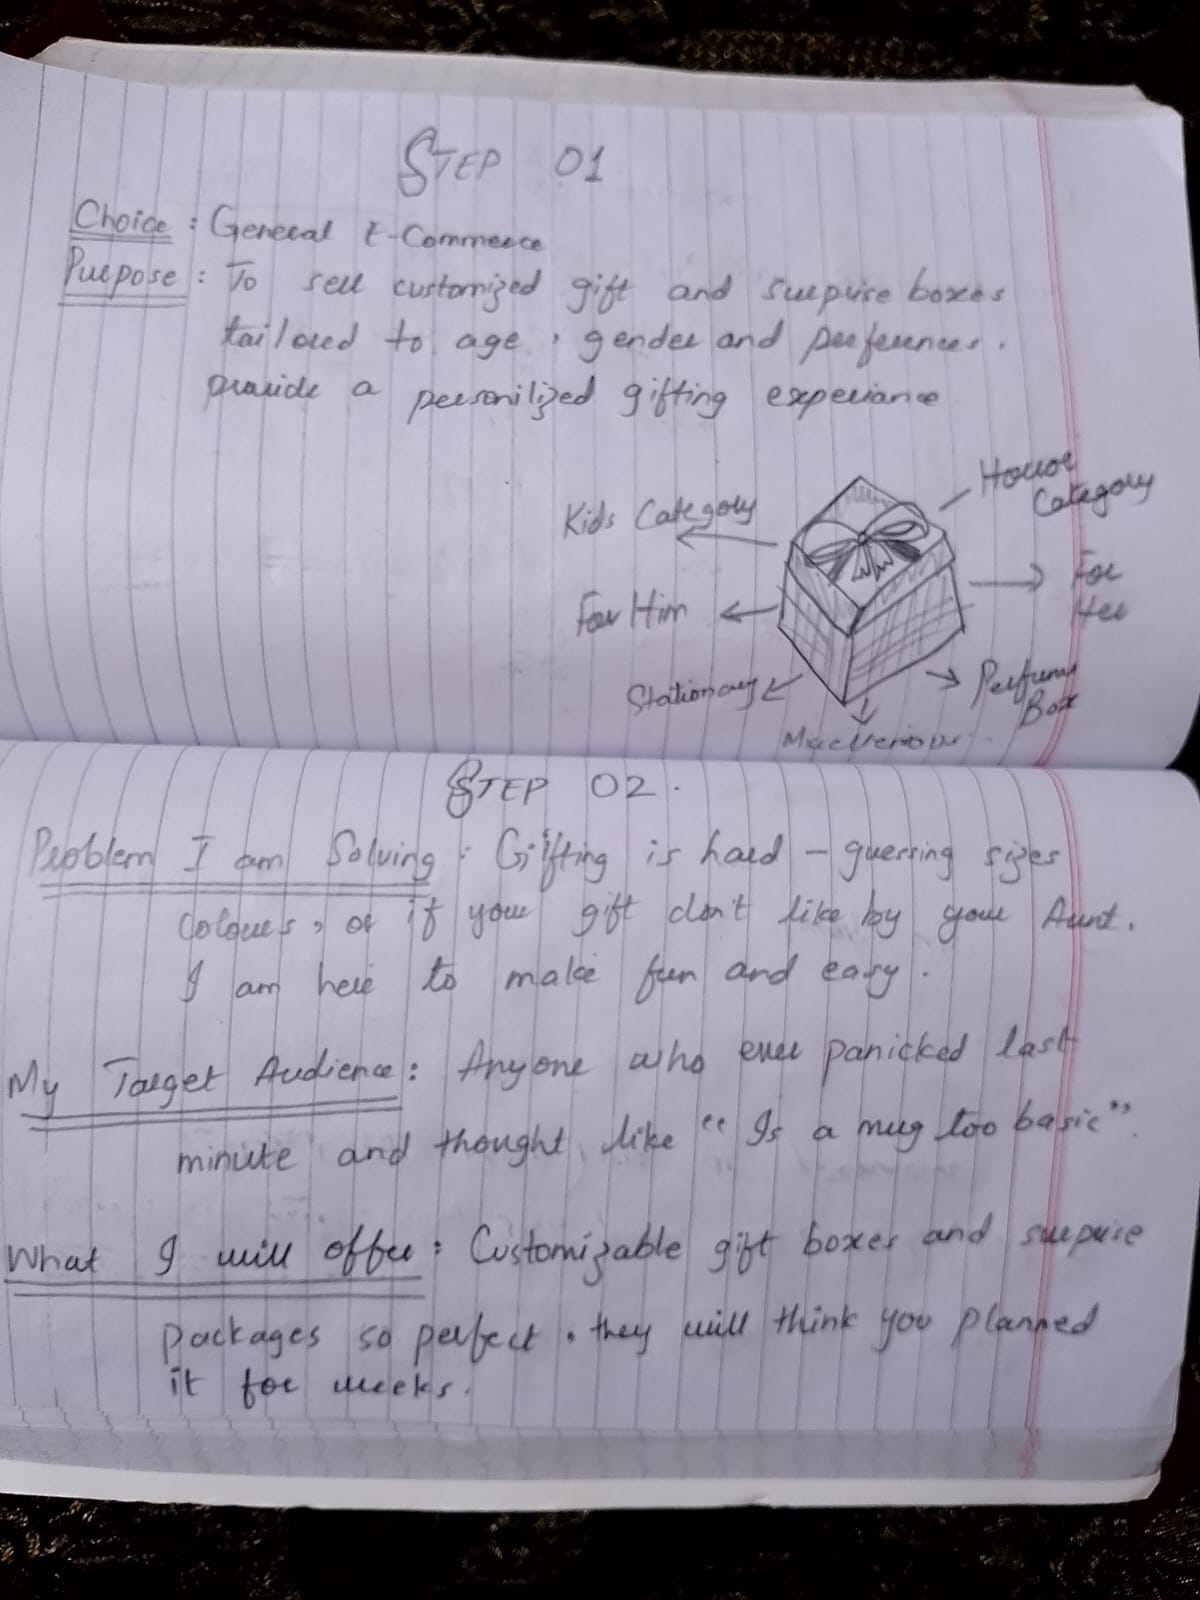 STEP 01
Choice : General E-Commerce
Purpose : To sell customized gift and surprise boxes
tailored to age, gender and preferences.
provide a personilized gifting experiance
Horror
Category
Kids Category
For
Her
For Him
Stationary
Perfume
Box
STEP 02.
Problem I am Solving : Gifting is hard - guessing sizes
colours, or if your gift don't like by your Aunt.
I am here to make fun and easy.
My Target Audience : Anyone who ever panicked last
minute and thought like "Is a mug too basic".
What I will offer : Customizable gift boxes and surprise
packages so perfect, they will think you planned
it for weeks.